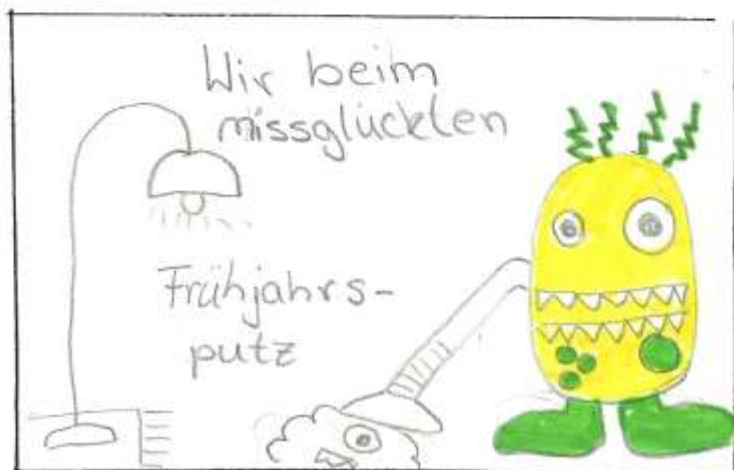 Wir beim
missglückten
Frühjahrs-
putz